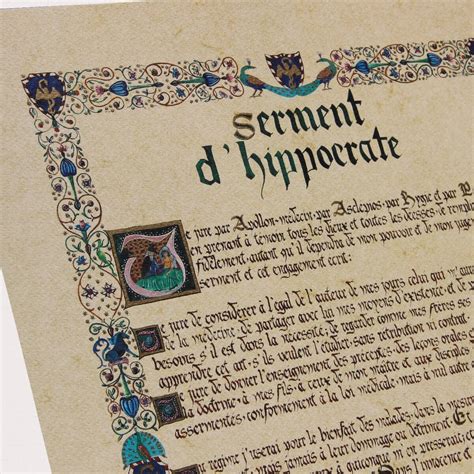 Serment
d'hippocrate
Je jure par Apollon médecin, par Asclépios, par Hygie et par
en prenant à témoin tous les dieux et toutes les déesses de remplir
fidèlement, autant qu'il dépendra de mon pouvoir et de mon
serment et cet engagement écrit.
Je jure de considérer à l'égal de l'auteur de mes jours celui qui m'
de la médecine, de partager avec lui mes moyens d'existence et de
besoins s'il est dans la nécessité, de regarder comme mes frères
apprendre cet art, s'ils veulent l'étudier, sans rétribution ni contrat
Je jure de donner l'enseignement des préceptes, des leçons orales
la doctrine à mes fils, à ceux de mon maître et aux disciples
assermentés, conformément à la loi médicale, mais à nul autre
régime j'userai pour le bienfait des malades, dans la
jamais à leur dommage ou détriment